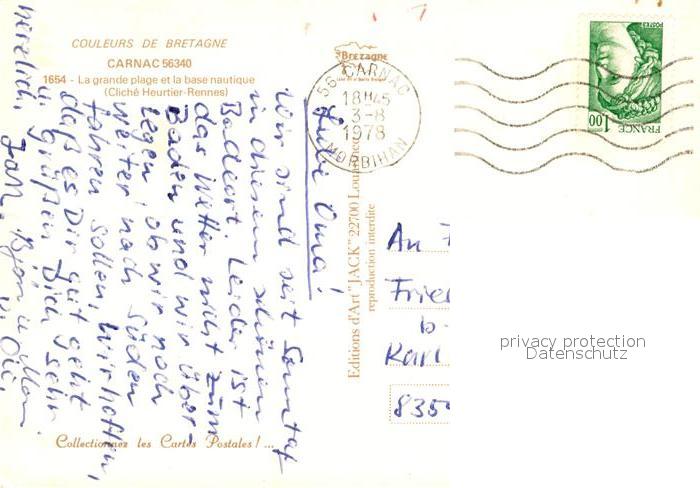 COULEURS DE BRETAGNE
CARNAC 56340
1654 - La grande plage et la base nautique
(Cliché Heurtier-Rennes)
Bretagne
56 CARNAC
18H45
3-8
1978
MORBIHAN
1,00
FRANCE
POSTES
Liebe Oma!
Wir sind seit Sonntag
in diesem schönen
Badeort. Leider ist
das Wetter nicht zum
Baden und wir über-
legen ob wir noch
weiter nach Süden
fahren sollen. Wir hoffen,
daß es Dir gut geht
u. grüßen Dich sehr
herzlich
Jan, Björn
u. Oli.
Editions d'Art "JACK" 22700
reproduction interdite
An
Fried
b.
Karl
835
privacy protection
Datenschutz
Collectionnez les Cartes Postales!...